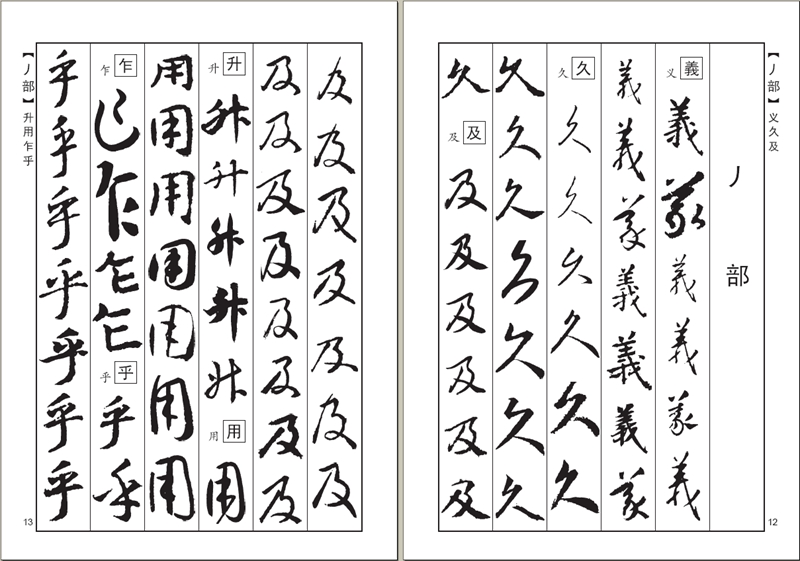 【丿部】义久及
丿部
義义
義義義義義義
義義義義義義義
久久
久久久久久久
久久久久久久久
久
及及
及及及及及及
12
及及及及及及及
及及及及及及及及
升升
升升升升升
用用
用
用用用用用用用
乍乍
乍乍乍乍
乎乎
乎乎
乎乎乎乎乎乎乎
【丿部】升用乍乎
13